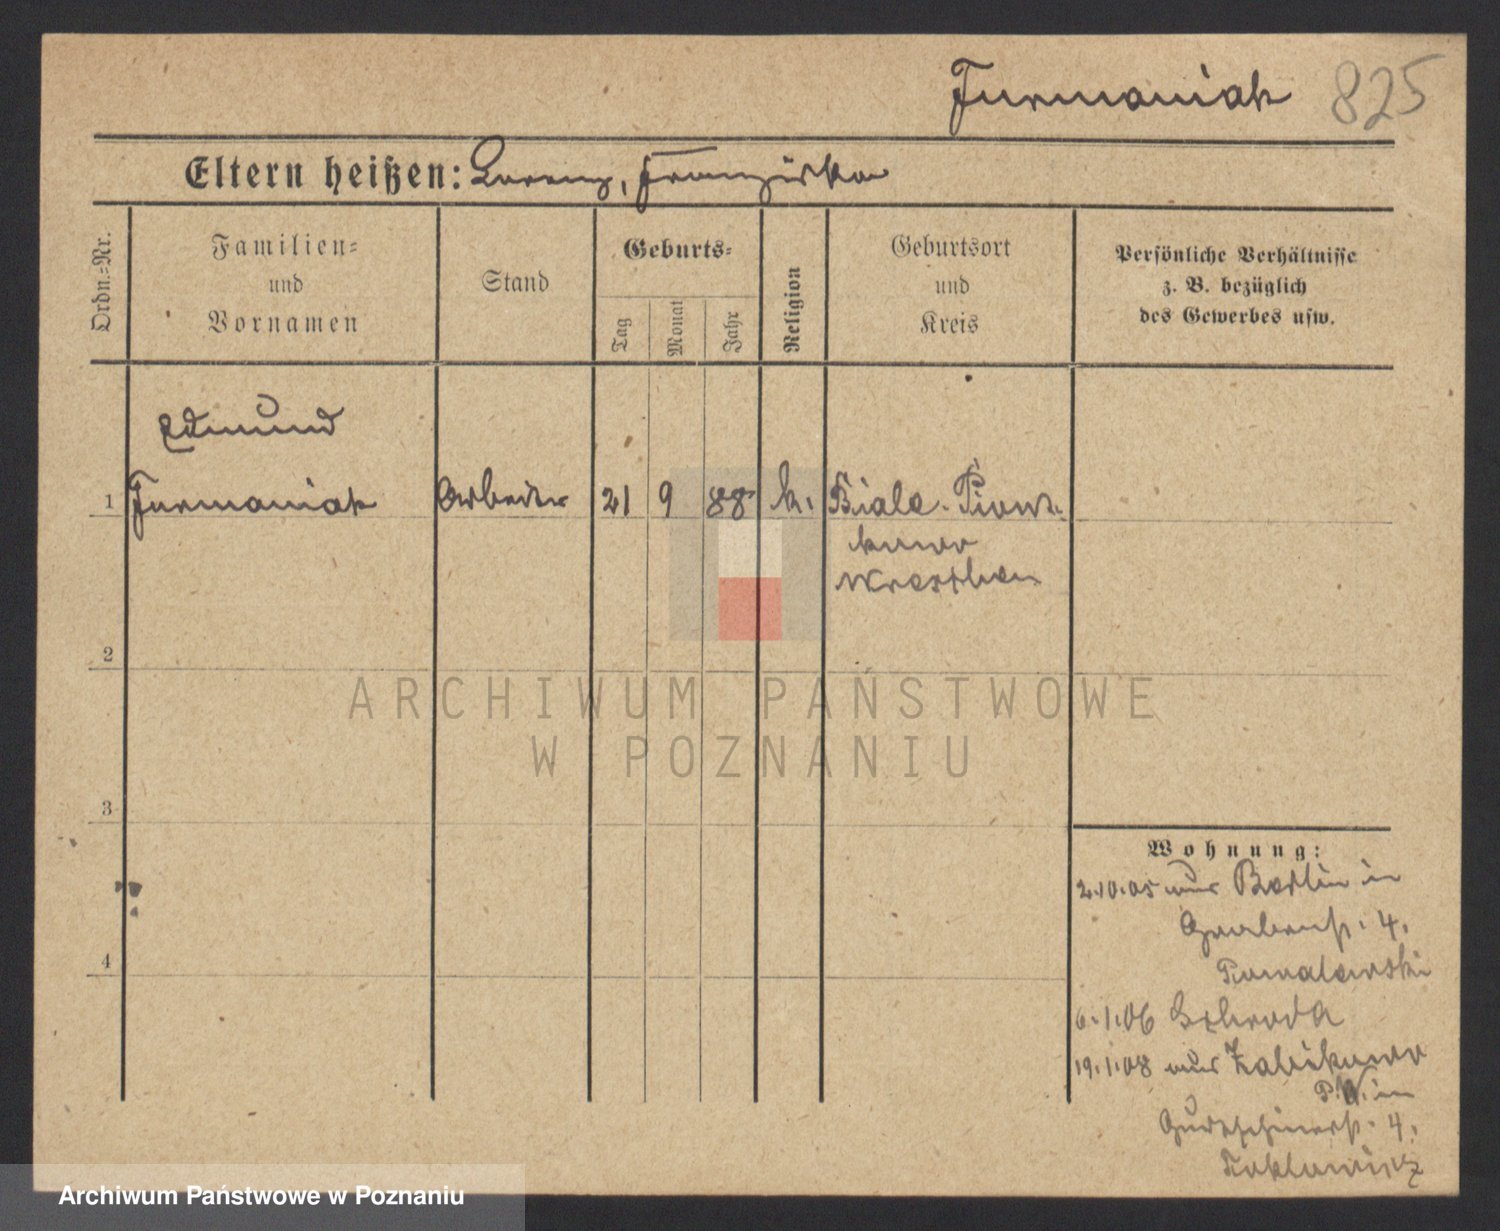 Furmaniak 825
Eltern heißen: Lorenz, Franziska
Ordn.=Nr.
Familien=
und
Vornamen
Stand
Geburts=
Tag
Monat
Jahr
Religion
Geburtsort
und
Kreis
Persönliche Verhältnisse
z. B. bezüglich
des Gewerbes usw.
Edmund
1 Furmaniak Arbeiter 21 9 88. k. Biala-Piont-
kowo
Wreschen
2
3
4
ARCHIWUM PAŃSTWOWE
W POZNANIU
Wohnung:
2.10.05 aus Berlin in
Grabenst. 4.
6.1.06 Schroda
19.1.08 aus Zabikowo
P.W. in
4.
Archiwum Państwowe w Poznaniu